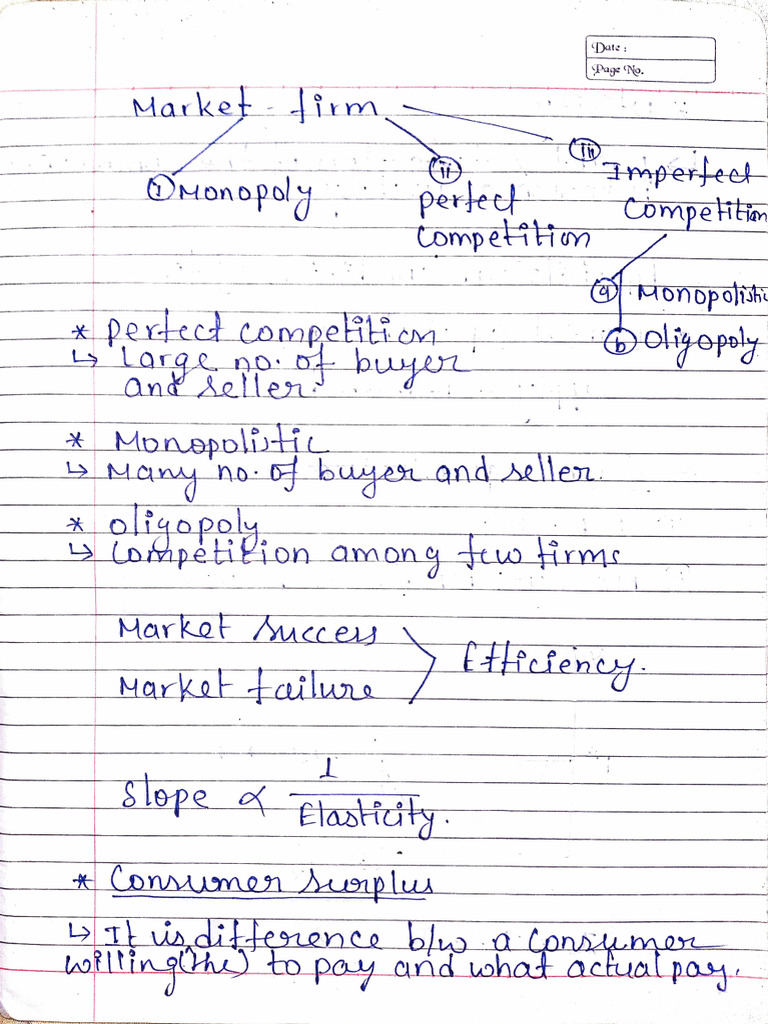 Date :
Page No.
Market firm
(i) Monopoly
(ii) perfect competition
(iii) Imperfect competition
(a) Monopolistic
(b) Oligopoly
* perfect competition
↳ Large no. of buyer
and seller.
* Monopolistic
↳ Many no. of buyer and seller.
* oligopoly
↳ competition among few firms
Market success
Market failure
Efficiency.
Slope ∝ 1 / Elasticity.
* Consumer surplus
↳ It is difference b/w a consumer
willing (the) to pay and what actual pay.